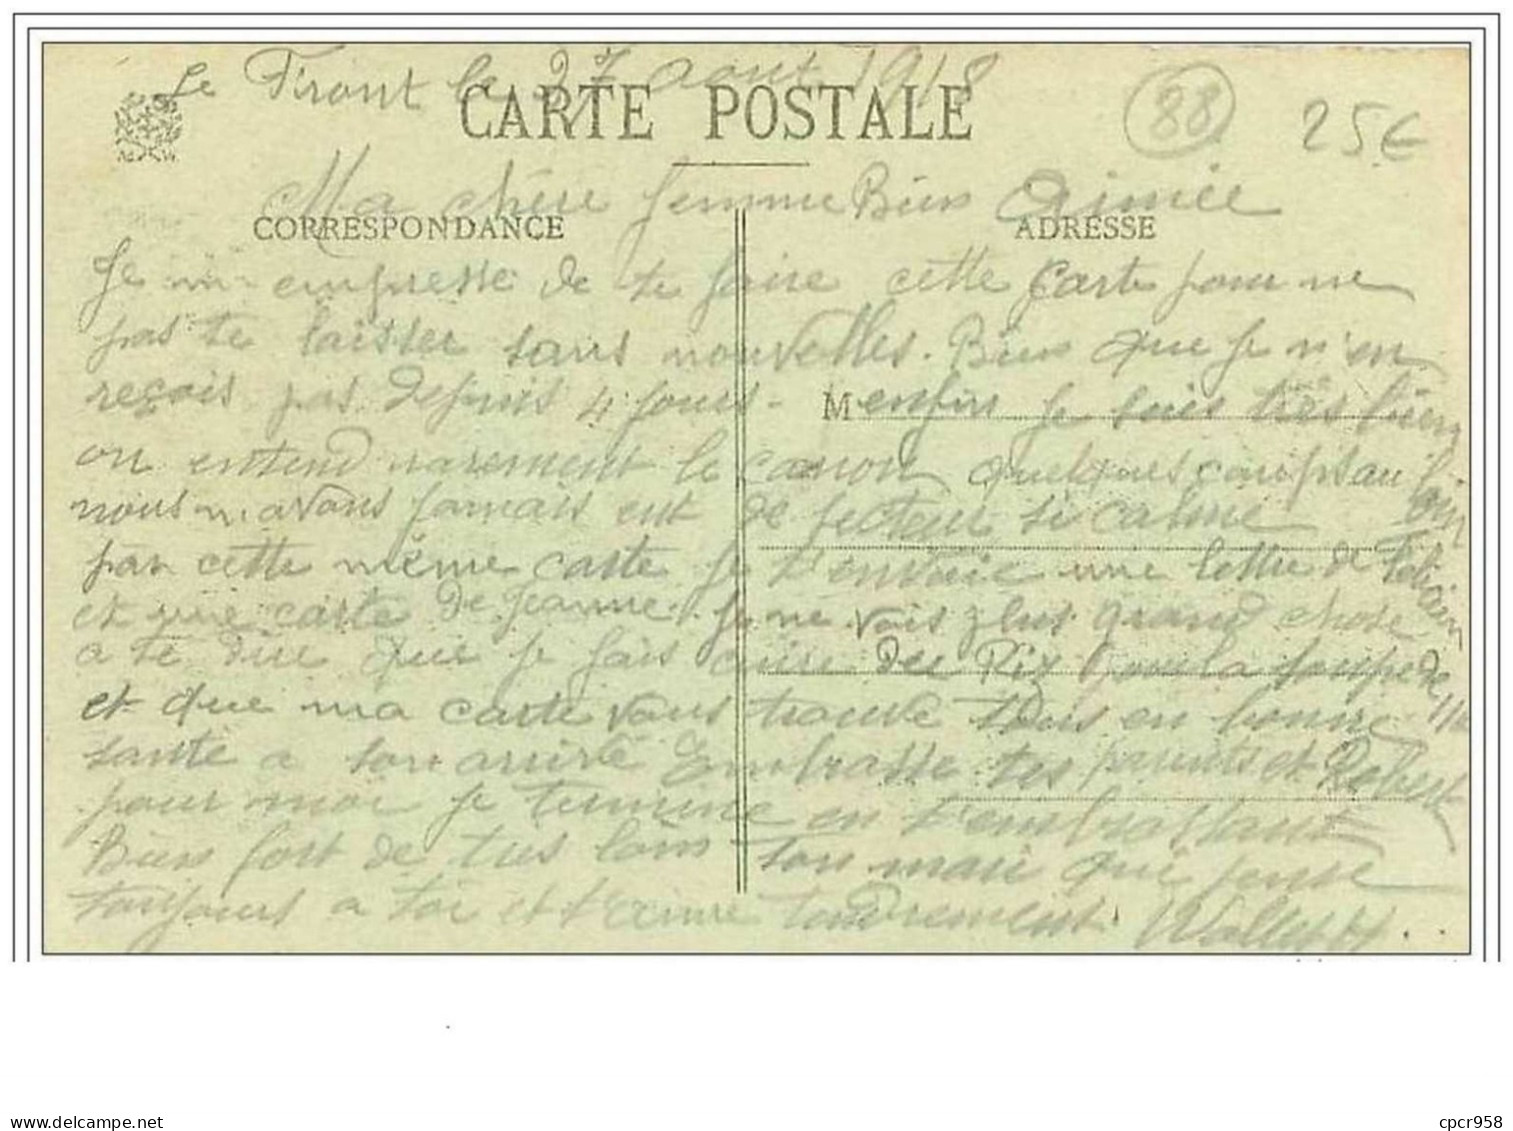 Le Front le 27 août 1918
CARTE POSTALE
88
25€
Ma chère femme Bien Aimée
CORRESPONDANCE
ADRESSE
Je m'empresse de te faire cette carte pour ne
pas te laisser sans nouvelles. Bien que je n'en
reçois pas depuis 4 jours. M enfin je suis très bien
on entend rarement le canon quelques coups au loin
nous n'avons jamais eut de secteur si calme
par cette même carte je t'envoie une lettre de Felicien
et une carte de Jeanne. Je ne vois plus grand chose
a te dire que je fais cuire du Rix pour la soupe de
et que ma carte vous trouve tous en bonne
santé a son arrivé Embrasse tes parents et Robert
pour moi je termine en t'embrassant
Bien fort de très loin ton mari qui pense
toujours a toi et t'aime tendrement.
cpcr958